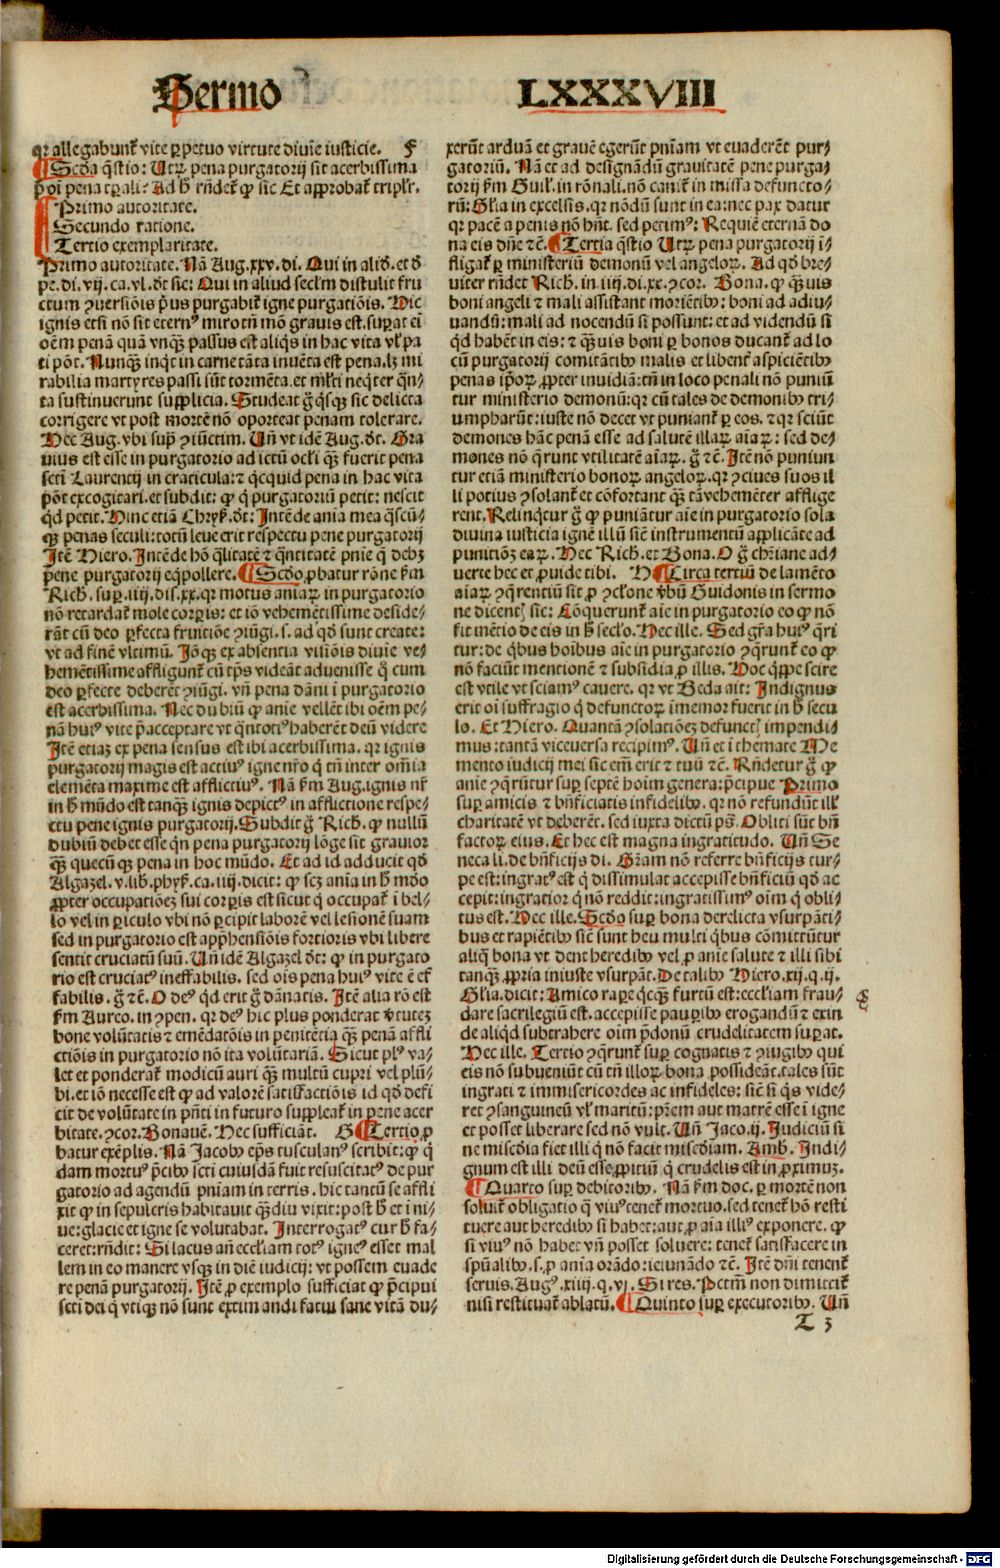 Sermo
LXXXVIII
qꝛ allegabunt᷑ vite ꝑpetuo virtute diuīe iusticie. F
¶ Scd̓a q̄stio: Utꝝ pena purgatorij sit acerbissima
p̄ oī pena tꝑali? Ad ħ rn̄det᷑ ꝙ sic Et apꝓbat᷑ tripl̓r.
Primo autoritate.
Secundo ratione.
Tertio exemplaritate.
Primo autoritate. Nā Aug. xxv. di. Qui in aliđ. et đ
pe. di. vij. ca. vl. đt sic: Qui in aliud secl̓m distulit fru
ctum ꝯuersiōis pͥus purgabit᷑ igne purgatiōis. Hic
ignis etsi nō sit etern⁹ miro tn̄ mō grauis est. suꝑat eī
oēm penā quā vnq̄ꝫ passus est aliq̇s in hac vita vl̓ pa
ti pōt. Nunq̄ꝫ inq̇t in carne tāta inuēta est pena. lꝫ mi
rabilia martyres passi sūt tormēta. et ml̓ti neq̇ter q̄n⸗
ta sustinuerunt supplicia. Studeat ḡ q̇sqꝫ sic delicta
corrigere vt post mortē nō oporteat penam tolerare.
Hec Aug. vbi supͣ ꝯiūctim. Un̄ vt idē Aug. đt. Gra
uius est esse in purgatorio ad ictū ocl̓i q̄ꝫ fuerit pena
scti̅ Laurentij in craticula: ⁊ q̇cquid pena in hac vita
pōt excogitari. et subdit: ꝙ q̇ purgatoriū petit: nescit
qͥd petit. Hinc etiā Chryß. đt: Intēde aīa mea q̇scū⸗
qꝫ penas seculi: totū leue erit respectu pene purgatorij
Itē Hiero. Intēde hō q̄litatē ⁊ q̄ntitatē pnīe q̇ debꝫ
pene purgatorij eq̇pollere. ¶ Scd̓o ꝓbatur rōne ẜm
Rich. suꝑ. iiij. dis. xx. qꝛ motus aīaꝝ in purgatorio
nō retardat᷑ mole corꝑis: et iō vehemētissime deside⸗
rāt cū deo ꝑfecta fruitiōe ꝯiūgi. s. ad qđ sunt create:
vt ad finē vltimū. Iō qꝫ ex absentia visiōis diuīe ve⸗
hemētissime affligunt᷑ cū tꝑs videāt aduenisse q̊ cum
deo ꝑfecte deberēt ꝯiūgi. vn̄ pena dāni ī purgatorio
est acerbissima. Nec dubiū ꝙ aīe vellēt ibi oēm pe⸗
nā hui⁹ vite p̄acceptare vt q̇ntoti⁹ haberēt deū videre
Itē etiaꝫ ex pena sensus est ibi acerbissima. qꝛ ignis
purgatorij magis est actiu⁹ igne nr̄o q̇ tn̄ inter om̄ia
elemēta maxime est afflictiu⁹. Nā ẜm Aug. ignis nr̄
in ħ mūdo est tanq̄ꝫ ignis depict⁹ in afflictione respe⸗
ctu pene ignis purgatorij. Subdit ḡ Rich. ꝙ nullū
dubiū debet esse q̇n pena purgatorij lōge sit grauior
q̄ꝫ quecūqꝫ pena in hoc mūdo. Et ad id adducit qđ
Algazel. v. lib̓. phyß. ca. iiij. dicit: ꝙ scꝫ aīa in ħ mūdo
ꝓpter occupatiōeꝫ sui corꝑis est sicut q̇ occupat᷑ ī bel⸗
lo vel in ꝑiculo vbi nō ꝑcipit laborē vel lesionē suam
sed in purgatorio est app̄hensiōis fortioris vbi libere
sentit cruciatū suū. Un̄ idē Algazel đt: ꝙ in purgato
rio est cruciat⁹ ineffabilis. sed oīs pena hui⁹ vite ē ef
fabilis. ḡ ⁊c̄. O de⁹ qͥd erit ḡ dānatis. Itē alia rō est
ẜm Aureo. in ꝯpen. qꝛ de⁹ hic plus ponderat v̓tuteꝫ
bone volūtatis ⁊ emēdatiōis in penitētia q̄ꝫ penā affli
ctiōis in purgatorio nō ita volūtariā. Sicut pl⁹ va⸗
let et ponderat᷑ modicū auri q̄ꝫ multū cupri vel plū⸗
bi. et iō necesse est ꝙ ad valorē satisfactiōis id qđ defi
cit de volūtate in pn̄ti in futuro suppleat᷑ in pene acer
bitate. ꝯcor. Bonauē. Hec sufficiāt. G ¶ Tertio ꝓ
batur exēplis. Nā Jacob⁹ ep̄s tusculan⁹ scribit: ꝙ q̇
dam mortu⁹ p̄cib⁹ scti̅ cuiusdā fuit resuscitat⁹ de pur
gatorio ad agendū pnīam in terris. hic tantū se affli
xit ꝙ in sepulcris habitauit q̄ꝫdiu vixit: post ħ et ī ni⸗
ue: glacie et igne se volutabat. Interrogat⁹ cur ħ fa⸗
ceret: rn̄dit: Si lacus an̄ eccl̓iam tot⁹ igne⁹ esset mal
lem in eo manere vsqꝫ in diē iudicij: vt possem euade
re penā purgatorij. Itē ꝓ exemplo sufficiat ꝙ p̄cipui
scti̅ dei q̇ vtiqꝫ nō sunt extimandi fatui sane vitā du⸗
xerūt arduā et grauē egerūt pnīam vt euaderēt pur⸗
gatoriū. Nā et ad designādū grauitatē pene purga⸗
torij ẜm Guil̓. in rōnali. nō canit᷑ in missa defuncto⸗
rū: Gl̓ia in excelsis. qꝛ nōdū sunt in ea: nec pax datur
qꝛ pacē a penis nō hn̄t. sed petim⁹: Requiē eternā do
na eis dn̄e ⁊c̄. ¶ Tertia q̄stio Utꝝ pena purgatorij ī⸗
fligat᷑ ꝑ ministeriū demonū vel angeloꝝ. Ad qđ bre⸗
uiter rn̄det Rich. in iiij. di. xx. ꝯcor. Bona. ꝙ q̄ꝫuis
boni angeli ⁊ mali assistant moriētib⁹: boni ad adiu⸗
uandū: mali ad nocendū si possunt: et ad videndū si
qͥd habēt in eis: ⁊ q̄ꝫuis boni ꝑ bonos ducant᷑ ad lo
cū purgatorij comitātib⁹ malis et libent᷑ aspiciētib⁹
penas ip̄oꝝ ꝓpter inuidiā: tn̄ in loco penali nō puniū
tur ministerio demonū: qꝛ cū tales de demonib⁹ tri⸗
umpharūt: iuste nō decet vt puniant᷑ ꝑ eos. ⁊ qꝛ sciūt
demones hāc penā esse ad salutē illaꝝ aīaꝝ: sed de⸗
mones nō q̇runt vtilitatē aīaꝝ. ḡ ⁊c̄. Itē nō puniun
tur etiā ministerio bonoꝝ angeloꝝ. qꝛ ꝯciues suos il
li potius ꝯsolant᷑ et cōfortant q̄ꝫ tā vehemēter afflige
rent. Relinq̇tur ḡ ꝙ puniātur aīe in purgatorio sola
diuina iusticia ignē illū siē instrumentū applicāte ad
punitiōꝫ eaꝝ. Hec Rich. et Bona. O ḡ chr̄iane ad⸗
uerte hec et ꝓuide tibi. H ¶ Circa tertiū de lamēto
aīaꝝ ꝯq̇rentiū sit ꝓ ꝯcl̓one v̓bū Guidonis in sermo
ne dicentꝭ sic: Cōquerunt᷑ aīe in purgatorio eo ꝙ nō
fit mētio de eis in ħ secl̓o. Hec ille. Sed gr̄a hui⁹ q̄ri
tur: de q̇bus hoībus aīe in purgatorio ꝯq̇runt᷑ eo ꝙ
nō faciūt mentionē ⁊ subsidia ꝓ illis. Hoc q̇ppe scire
est vtile vt sciam⁹ cauere. qꝛ vt Beda ait: Indignus
erit oī suffragio q̇ defunctoꝝ īmemor fuerit in ħ secu
lo. Et Hiero. Quantā ꝯsolatiōeꝫ defunctꝭ impendi⸗
mus: tantā viceuersa recipim⁹. Un̄ et ī themate Me
mento iudicij mei siē em̄ erit ⁊ tuū ⁊c̄. Rn̄detur ḡ ꝙ
aīe ꝯq̇rūtur suꝑ septē hoīm genera: p̄cipue Primo
suꝑ amicis ⁊ bn̄ficiatis infidelib⁹. qꝛ nō refundūt ill̓
charitatē vt deberēt. sed iuxta dictū ps̄. Obliti sūt bn̄
factoꝝ eius. Et hec est magna ingratitudo. Un̄ Se
neca li. de bn̄ficijs di. Gr̄am nō referre bn̄ficijs tur⸗
pe est: ingrat⁹ est q̇ dissimulat accepisse bn̄ficiū qđ ac
cepit: ingratior q̇ nō reddit: ingratissim⁹ oīm q̇ obli⸗
tus est. Hec ille. Scd̓o suꝑ bona derelicta vsurpāti⸗
bus et rapiētib⁹ siē sunt heu multi q̇bus cōmittūtur
aliq̇ bona vt dent heredib⁹ vel ꝓ aīe salute ⁊ illi sibi
tanq̄ꝫ ꝓpria iniuste vsurpāt. De talib⁹ Hiero. xij. q. ij.
Gl̓ia. dicit: Amico raꝑe q̇cq̄ꝫ furtū est: eccl̓iam frau⸗
dare sacrilegiū est. accepisse pauꝑib⁹ erogandū ⁊ exin
de aliqͥd subtrahere oīm p̄donū crudelitatem suꝑat.
Hec ille. Tertio ꝯq̇runt᷑ suꝑ cognatis ⁊ ꝯiugib⁹ qui
eis nō subueniūt cū tn̄ illoꝝ bona possideāt. tales sūt
ingrati ⁊ immisericordes ac infideles: siē si q̇s vide⸗
ret ꝯsanguineū vl̓ maritū: pr̄em aut matrē esse ī igne
et posset liberare sed nō vult. Un̄ Jaco. ij. Judiciū si
ne misc̄dia fiet illi q̇ nō facit misc̄diam. Amb. Indi⸗
gnum est illi deū esse ꝓpitiū q̇ crudelis est in ꝓximuꝫ.
¶ Quarto suꝑ debitorib⁹. Nā ẜm doc. ꝑ mortē non
soluit᷑ obligatio q̇ viu⁹ tenet᷑ mortuo. sed tenet᷑ hō resti
tuere aut heredib⁹ si habet: aut ꝓ aīa illi⁹ exponere. ꝙ
si viu⁹ nō habet vn̄ posset soluere: tenet᷑ satisfacere in
spūalib⁹. s. ꝓ aīa orādo: ieiunādo ⁊c̄. Itē dn̄i tenent᷑
seruis. Aug⁹. xiiij. q. vj. Si res. Pctm̄ non dimittit᷑
nisi restituat᷑ ablatū. ¶ Quinto suꝑ executorib⁹. Un̄
T 3
Digitalisierung gefördert durch die Deutsche Forschungsgemeinschaft - DFG